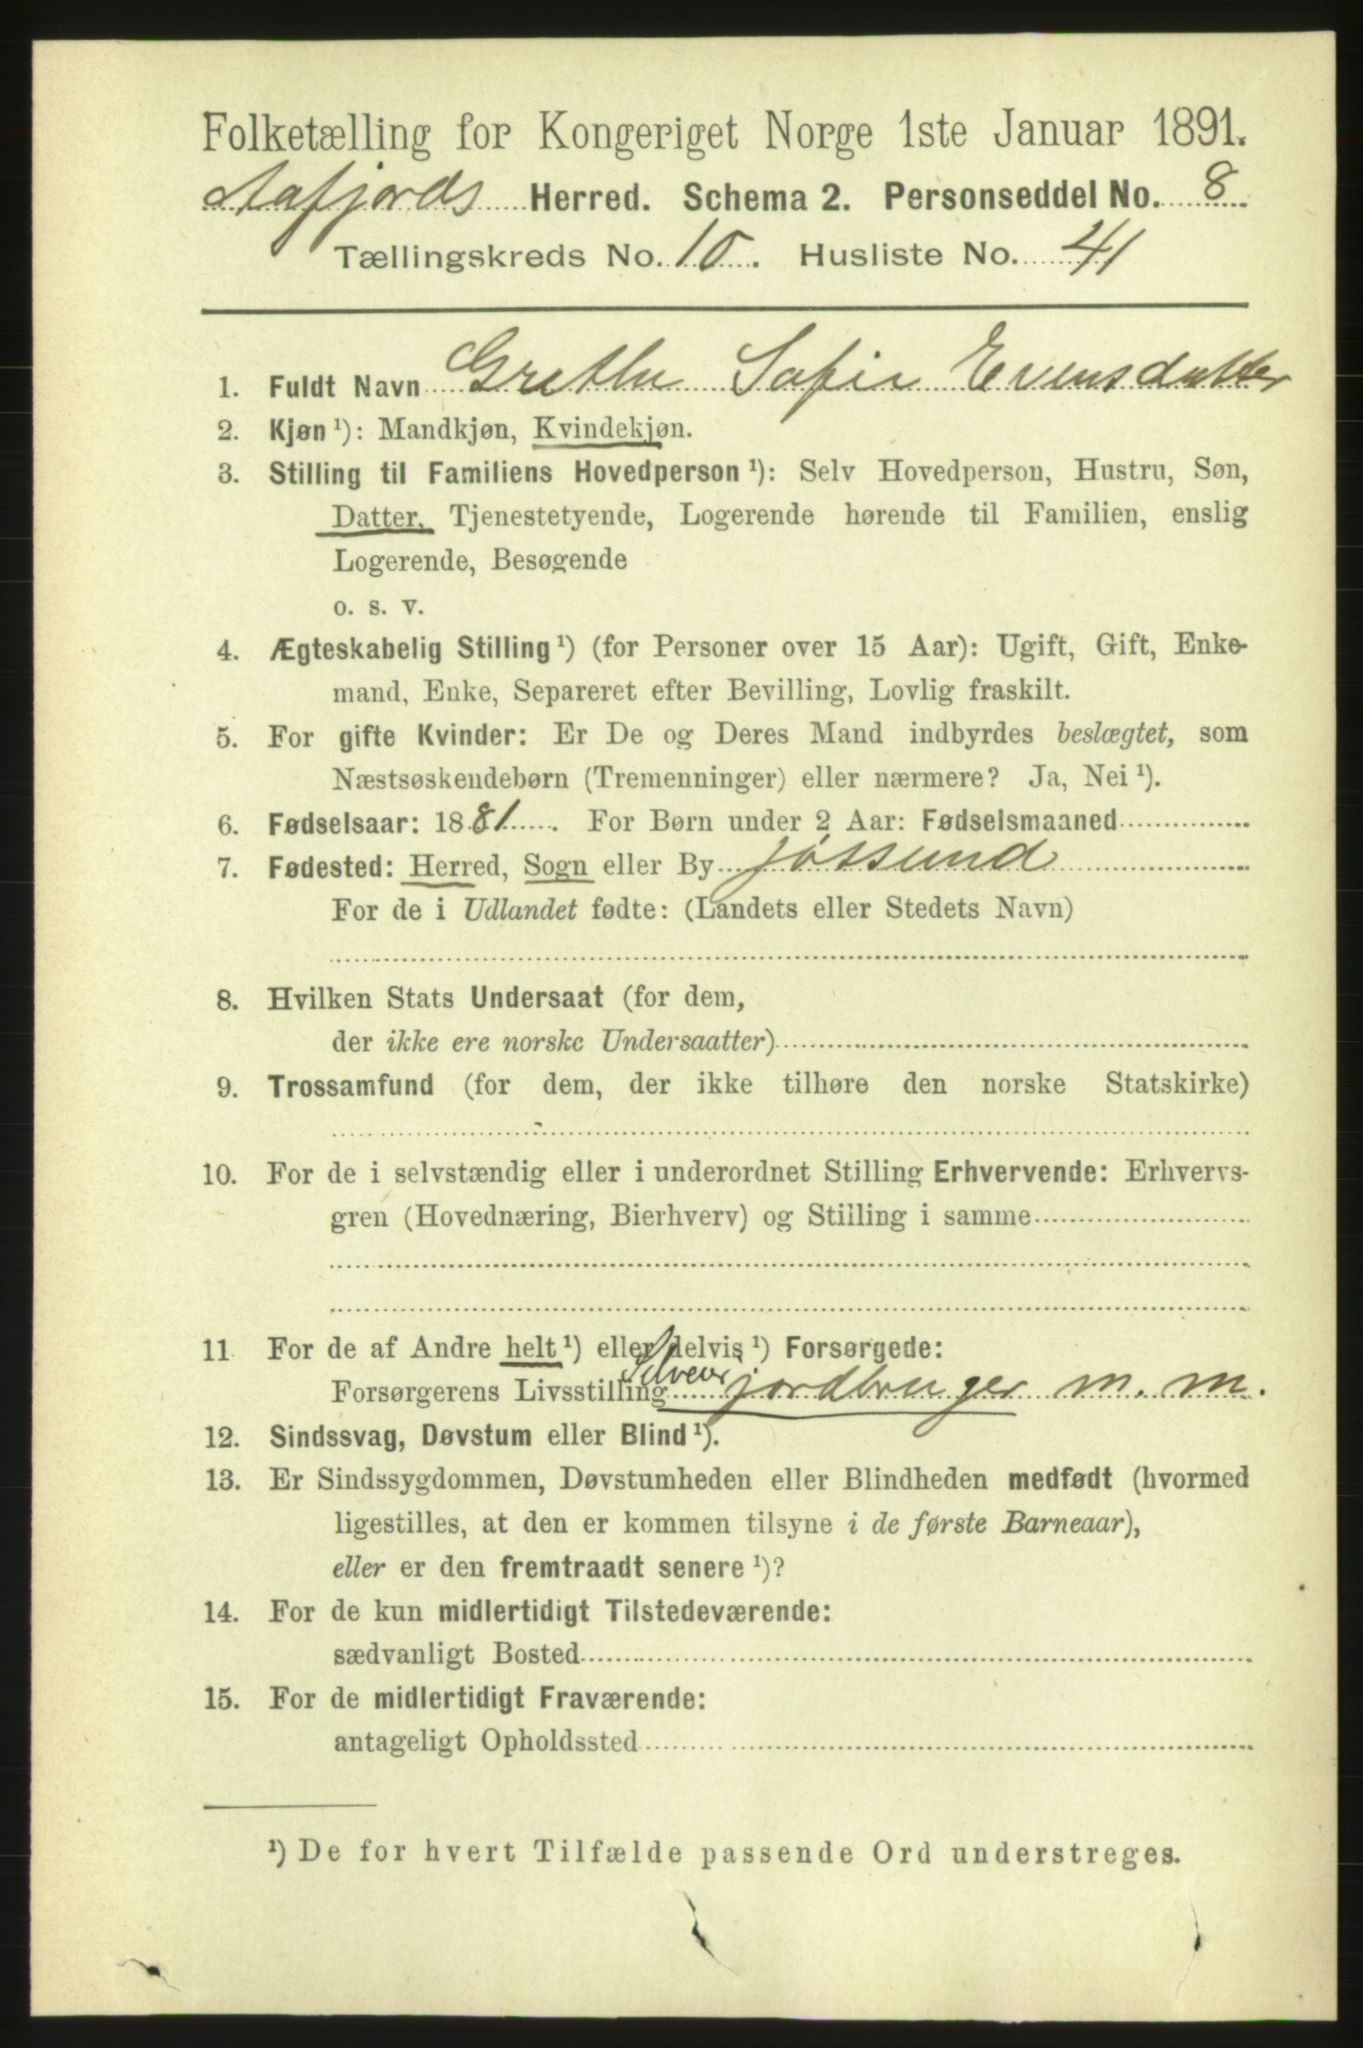 Folketælling for Kongeriget Norge 1ste Januar 1891.
Aafjords Herred. Schema 2. Personseddel No. 8
Tællingskreds No. 10. Husliste No. 41
1. Fuldt Navn Grethe Sofie Evensdatter
2. Kjøn ¹): Mandkjøn, Kvindekjøn.
3. Stilling til Familiens Hovedperson ¹): Selv Hovedperson, Hustru, Søn,
Datter, Tjenestetyende, Logerende hørende til Familien, enslig
Logerende, Besøgende
o. s. v.
4. Ægteskabelig Stilling ¹) (for Personer over 15 Aar): Ugift, Gift, Enke-
mand, Enke, Separeret efter Bevilling, Lovlig fraskilt.
5. For gifte Kvinder: Er De og Deres Mand indbyrdes beslægtet, som
Næstsøskendebørn (Tremenninger) eller nærmere? Ja, Nei ¹).
6. Fødselsaar: 1881. For Børn under 2 Aar: Fødselsmaaned
7. Fødested: Herred, Sogn eller By Jøssund
For de i Udlandet fødte: (Landets eller Stedets Navn)
8. Hvilken Stats Undersaat (for dem,
der ikke ere norske Undersaatter)
9. Trossamfund (for dem, der ikke tilhøre den norske Statskirke)
10. For de i selvstændig eller i underordnet Stilling Erhvervende: Erhvervs-
gren (Hovednæring, Bierhverv) og Stilling i samme
11 For de af Andre helt ¹) eller delvis ¹) Forsørgede:
Forsørgerens Livsstilling Selveier jordbruger m. m.
12. Sindssvag, Døvstum eller Blind ¹).
13. Er Sindssygdommen, Døvstumheden eller Blindheden medfødt (hvormed
ligestilles, at den er kommen tilsyne i de første Barneaar),
eller er den fremtraadt senere ¹)?
14. For de kun midlertidigt Tilstedeværende:
sædvanligt Bosted
15. For de midlertidigt Fraværende:
antageligt Opholdssted
¹) De for hvert Tilfælde passende Ord understreges.